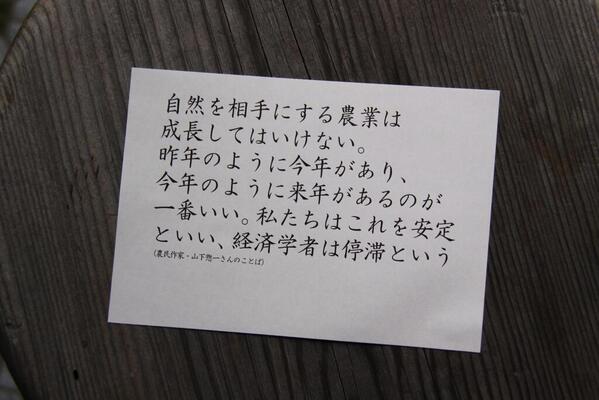 自然を相手にする農業は
成長してはいけない。
昨年のように今年があり、
今年のように来年があるのが
一番いい。私たちはこれを安定
といい、経済学者は停滞という
(農民作家・山下惣一さんのことば)